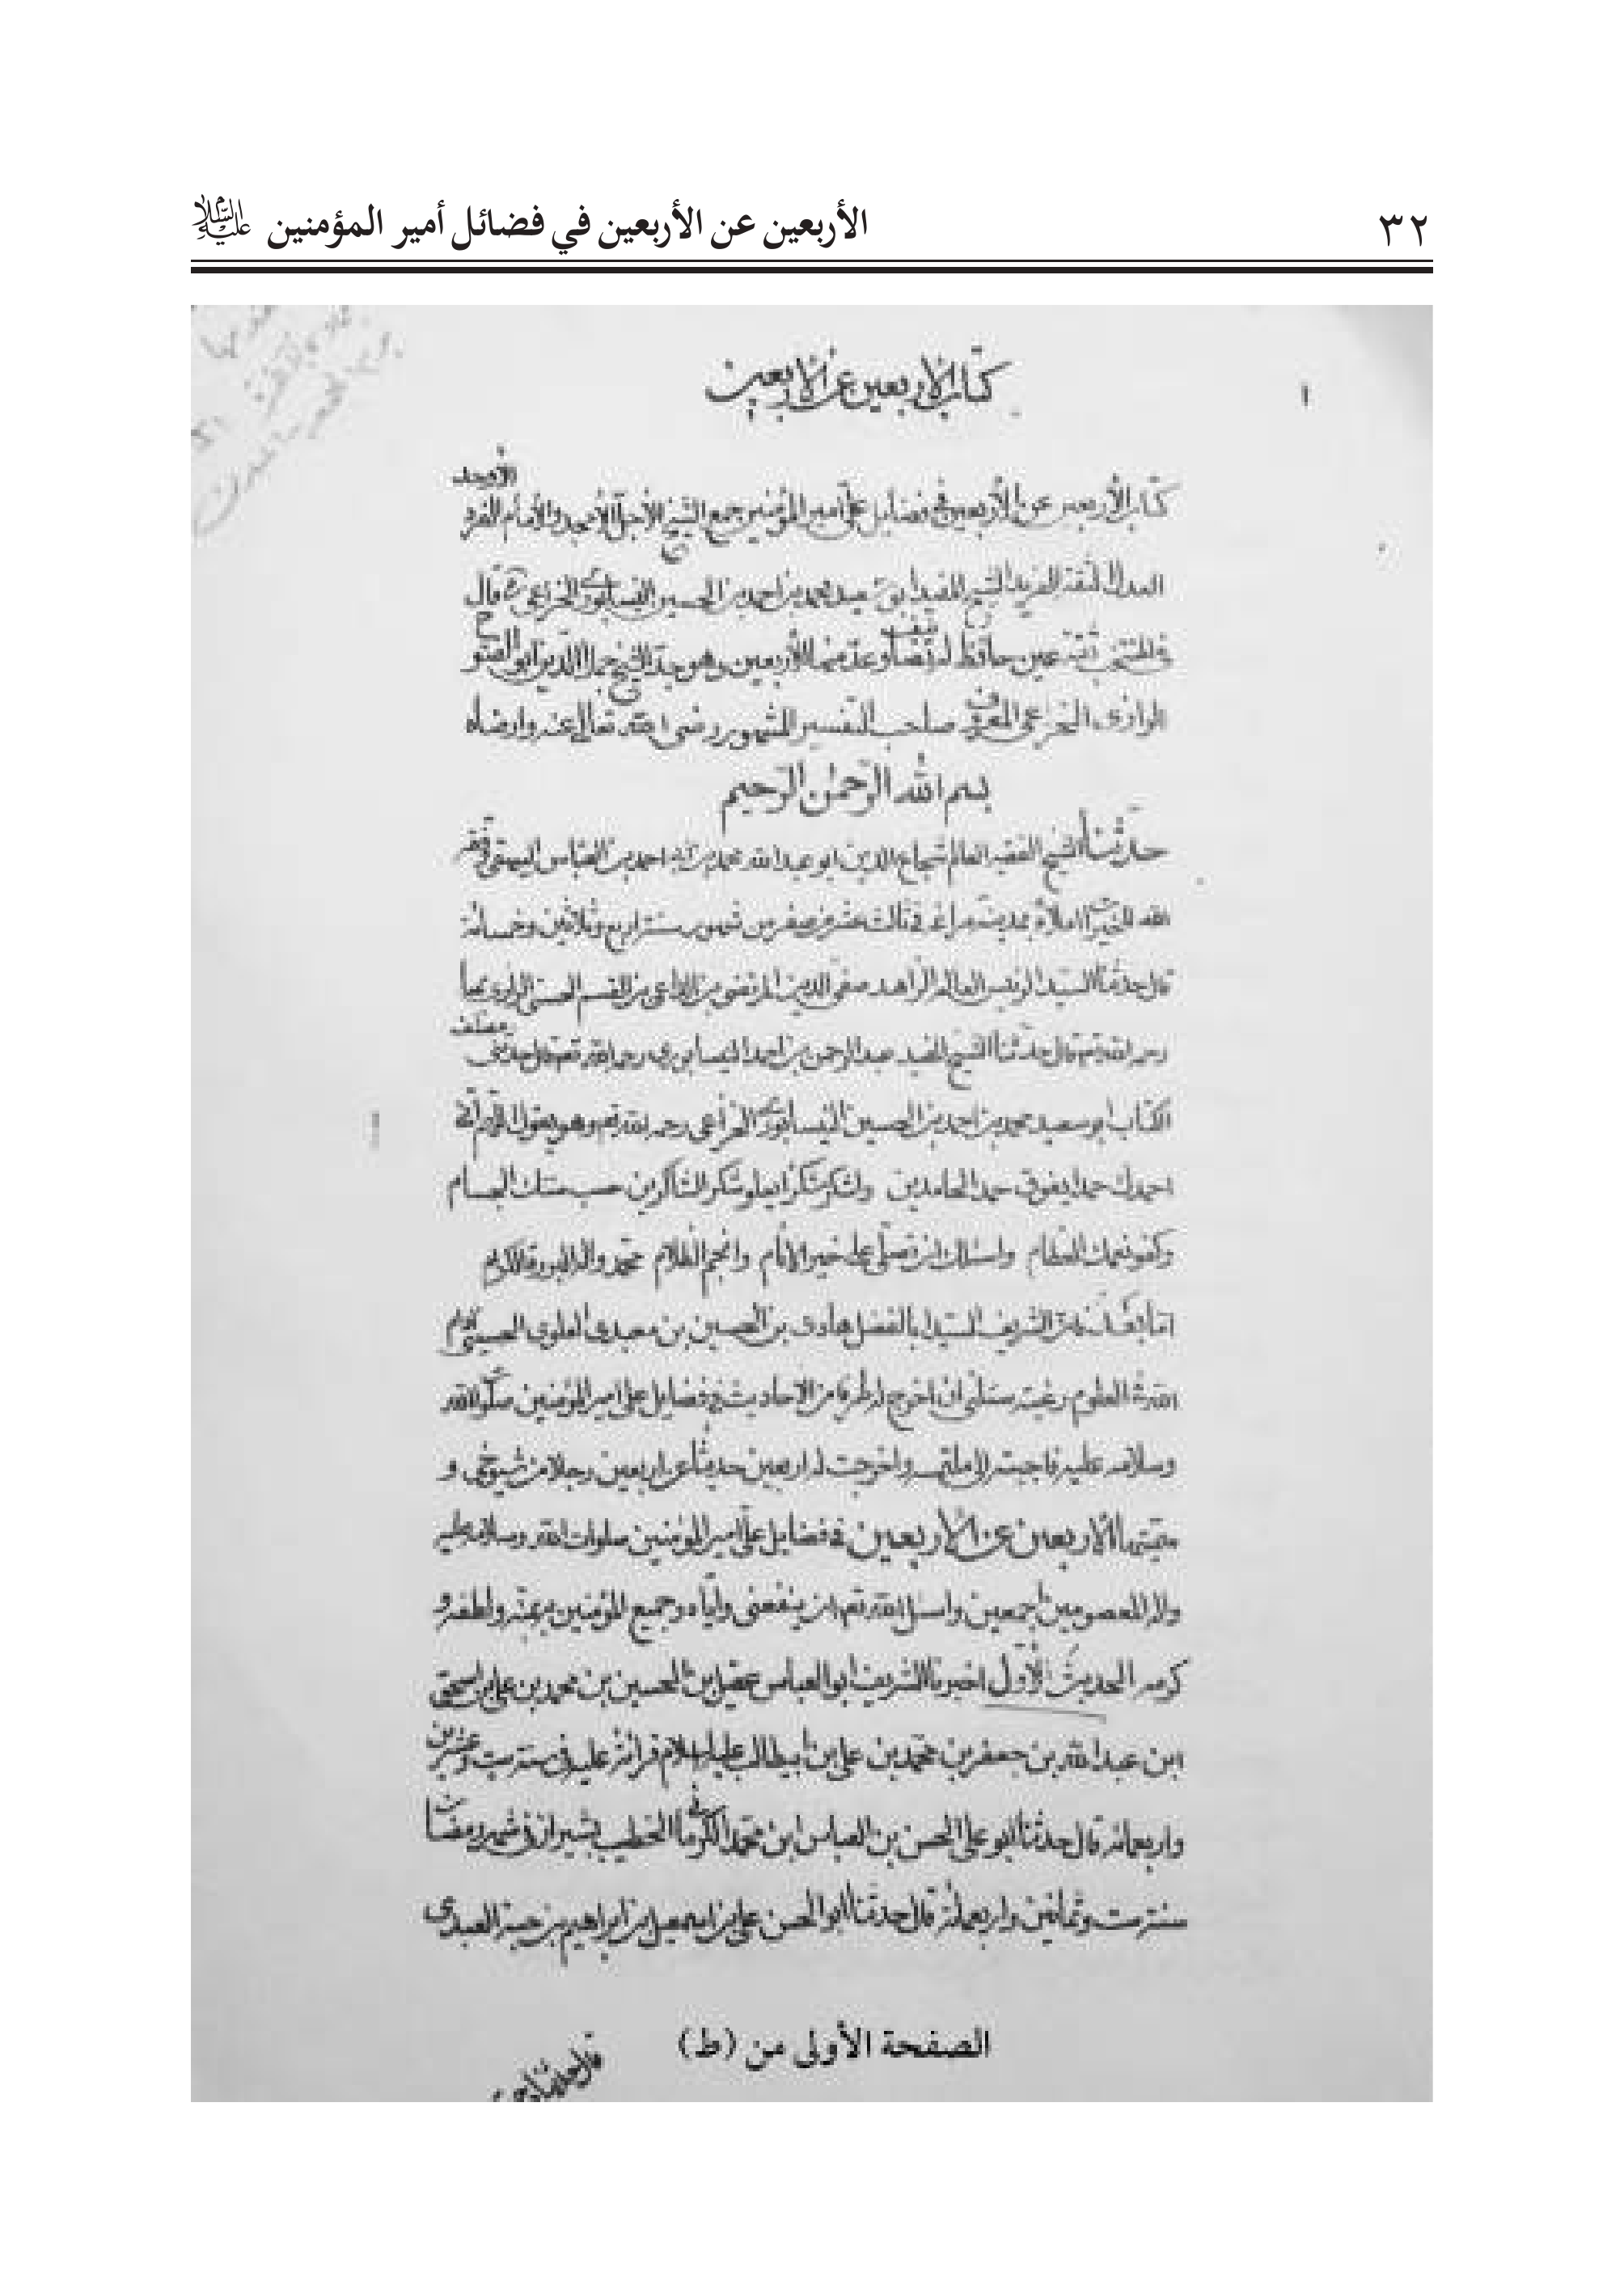 ٣٢
الأربعين عن الأربعين في فضائل أمير المؤمنين عليه السلام
١
كتاب الاربعين عن الاربعين
الأوحد
كتاب الأربعين عن الأربعين في فضايل علي أمير المؤمنين جمع الشيخ الأجل الأمجد والأمام
العدل الثقة الشيخ المفيد ابي سعيد محمد بن احمد بن الحسين النيسابوري الخزاعي قال
في ثقة عين حافظ له منها الأربعين وهو جد الشيخ جمال الدين ابو الفتوح
الرازي الخزاعي المعروف صاحب التفسير المشهور رضى الله تعالى عنه وارضاه
بسم الله الرحمن الرحيم
حدثنا الشيخ الفقيه العالم شجاع الدين ابو عبد الله محمد بن احمد بن العباس البيهقي وفقه
الله للخيرات املاء بمدينة مراغه في ثالث عشر من صفر من شهور سنة اربع وثلاثين وخمسمائة
قال حدثنا السيد الرئيس العالم الزاهد صفي الدين المرتضى بن الداعى بن القسم الحسنى الرازي بها
رحمه الله قال حدثنا الشيخ المفيد عبد الرحمن بن احمد النيسابورى رحمه الله قال حدثنى مصنف
الكتاب ابو سعيد محمد بن احمد بن الحسين النيسابوري الخزاعي رحمه الله وهو يقول اللهم انى
احمدك حمدا يفوق حمد الحامدين واشكرك شكرا يعلو شكر الشاكرين حسب مننك الجسام
وكفو نعمك العظام واسئلك ان تصلى على خير الانام وانجم الظلام محمد واله البررة الكرام
اما بعد الشريف السيد ابا الفضل هادى بن الحسين بن مهدى العلوى الحسينى
الله في العلوم رغبته سئلنى ان اخرج له طرفا من الاحاديث في فضايل على امير المؤمنين صلوات الله
وسلامه عليه فاجبته الى ملتمسه واخرجت له اربعين حديثا عن اربعين رجلا من شيوخى و
سميتها الاربعين عن الاربعين في فضايل على امير المؤمنين صلوات الله وسلامه عليه
واله المعصومين اجمعين واسئل الله ان ينفعنى واياه وجميع المؤمنين بمنه ولطفه و
كرمه الحديث الأول اخبرنا الشريف ابو العباس عقيل بن الحسين بن محمد بن على بن اسحق
ابن عبد الله بن جعفر بن محمد بن على بن ابيطالب عليه السلام قرائة عليه في سنة ست وعشرين
واربعمائة قال حدثنا ابو على الحسن بن العباس ابن محمد الكرماني الخطيب بشيراز في شهر رمضان
سنة ست وثمانين واربعمائة قال حدثنا ابو الحسن على بن اسمعيل بن ابراهيم بن العبدى
الصفحة الأولى من (ط)